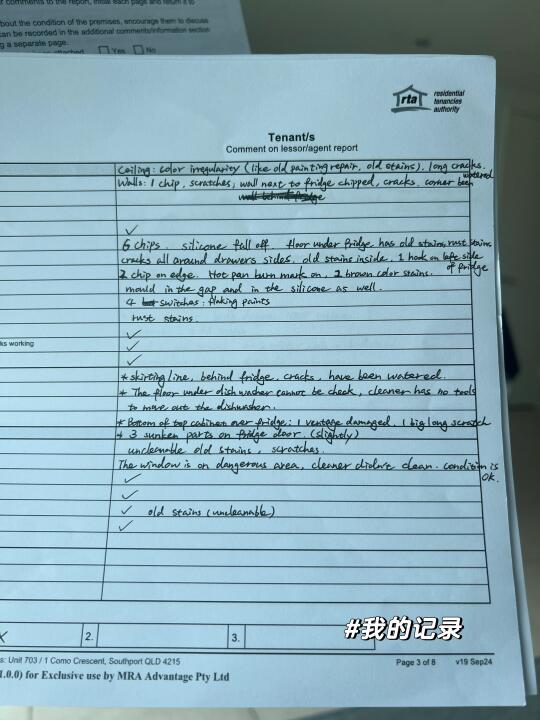 comments to the report, initial each page and return it to
bout the condition of the premises, encourage them to discuss
can be recorded in the additional comments/information section
ng a separate page.
attached Yes No
rta residential
tenancies
authority
Tenant/s
Comment on lessor/agent report
Ceiling: color irregularity (like old painting repair, old stains). long cracks.
Walls: 1 chip, scratches, wall next to fridge chipped, cracks. corner been watered
wall behind fridge
✓
6 chips. silicone fall off. floor under fridge has old stains, rust stains
cracks all around drawers sides. old stains inside. 1 hook on left side of fridge
2 chip on edge. Hot pan burn mark on, 2 brown color stains.
mould in the gap and in the silicone as well.
4 switches: flaking paints
rust stains.
✓
✓
ks working
✓
* skirting line, behind fridge, cracks, have been watered.
* The floor under dishwasher cannot be check, cleaner has no tools
to move out the dishwasher.
* Bottom of top cabinet over fridge: 1 ventage damaged. 1 big long scratch
* 3 sunken parts on fridge door. (slightly)
uncleanable old stains, scratches.
The window is on dangerous area, cleaner didn't clean. condition is OK.
✓
✓
✓ old stains (uncleanable)
✓
#我的记录
2. 3.
s: Unit 703 / 1 Como Crescent, Southport QLD 4215
Page 3 of 8 v19 Sep24
1.0.0) for Exclusive use by MRA Advantage Pty Ltd